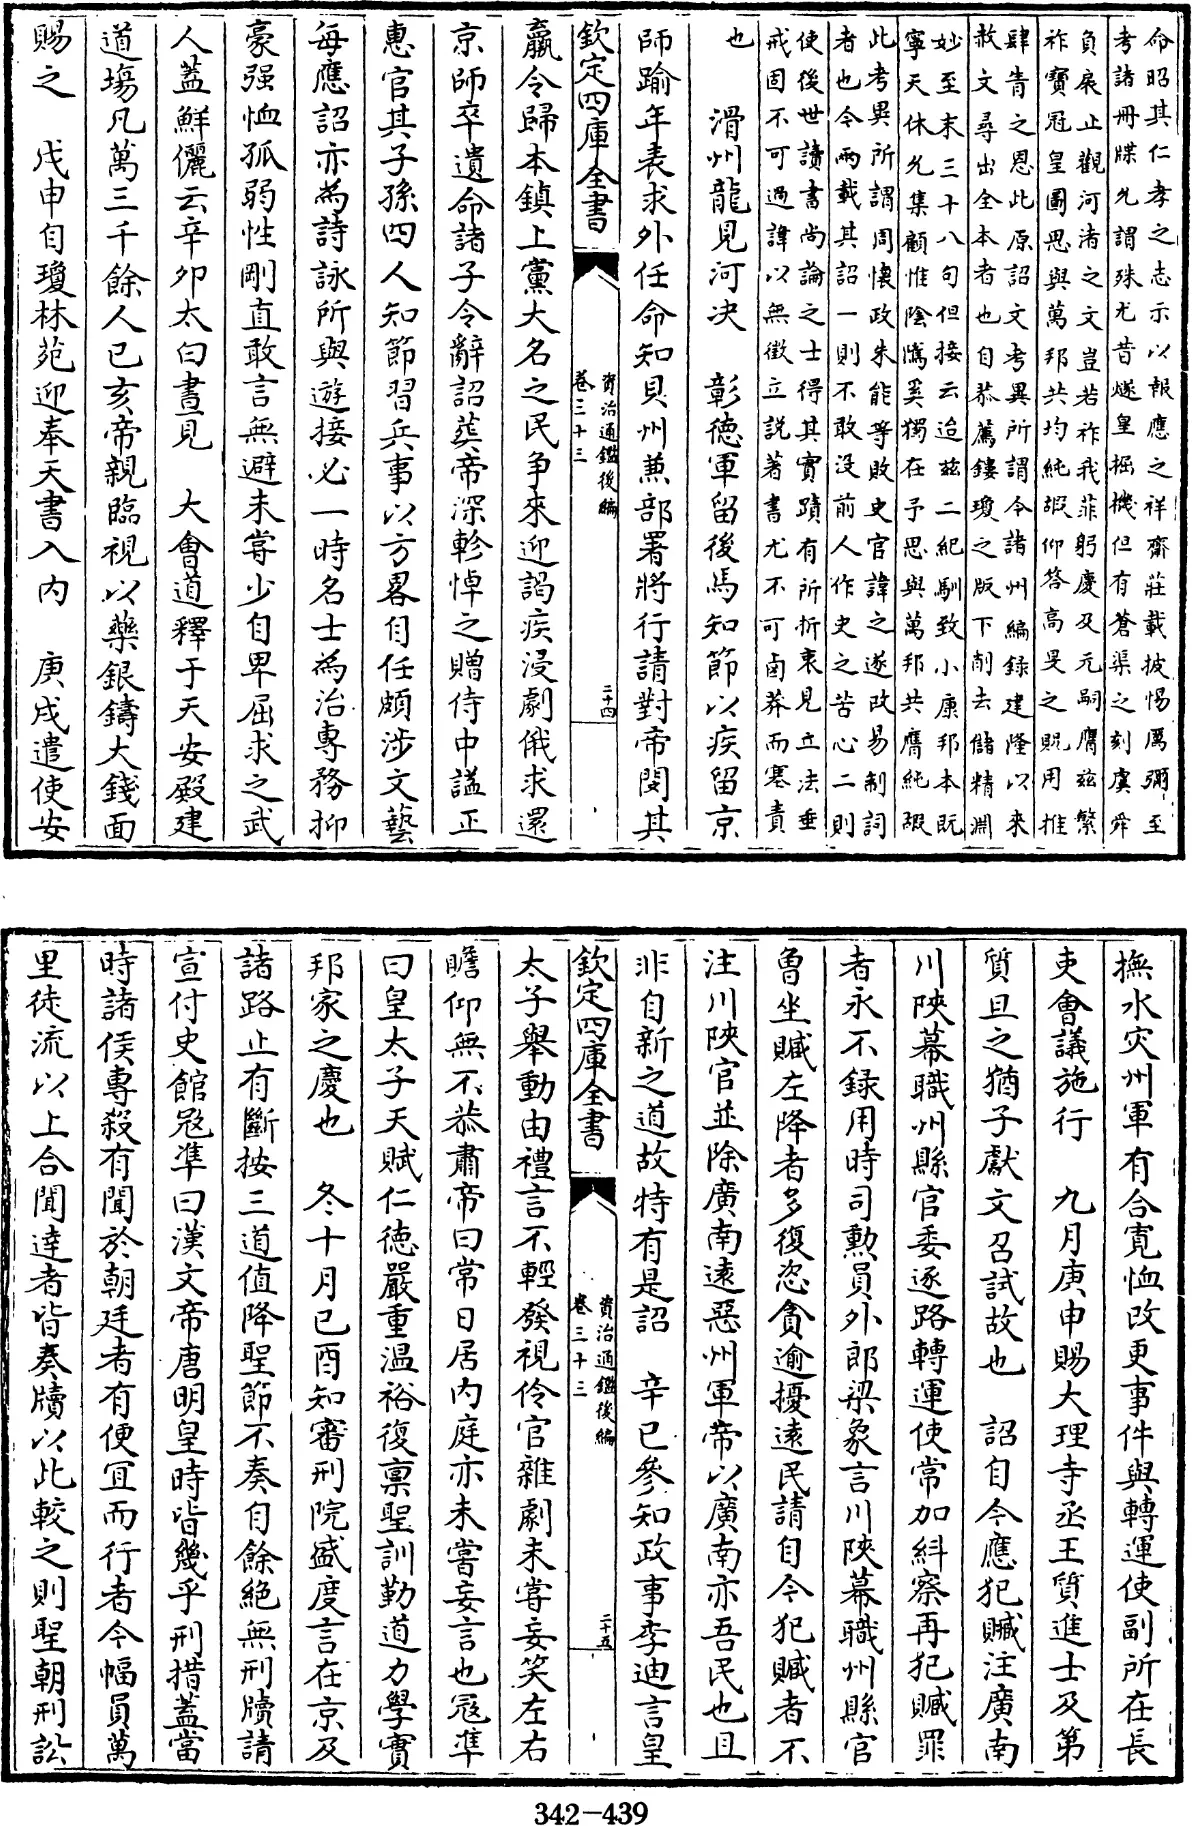 命昭其仁孝之志示以報應之祥齋莊載披惕厲彌至
考諸冊牒允謂殊尤昔燧皇握機但有蒼渠之刻虞舜
負扆止觀河渚之文豈若祚我菲躬慶及元嗣膺兹繁
祚寶冠皇圖思與萬邦共均純嘏仰答高旻之貺用推
肆眚之恩此原詔文考異所謂令諸州編録建隆以來
赦文尋出全本者也自恭薦鏤瓊之版下削去儲精淵
妙至末三十八句但接云迨兹二紀馴致小康邦本既
寧天休允集顧惟陰隲奚獨在予思與萬邦共膺純嘏
此考異所謂周懷政朱能等敗史官諱之遂改易制詞
者也今兩載其詔一則不敢没前人作史之苦心二則
使後世讀書尚論之士得其實蹟有所折衷見立法垂
戒固不可過諱以無徵立說著書尤不可鹵莽而塞責
也　滑州龍見河決　彰德軍留後馬知節以疾留京
師踰年表求外任命知貝州兼部署將行請對帝閔其
欽定四庫全書
資治通鑑後編
卷三十三
二十四
羸令歸本鎮上黨大名之民争來迎謁疾浸劇俄求還
京師卒遺命諸子令辭詔葬帝深軫悼之贈侍中諡正
惠官其子孫四人知節習兵事以方畧自任頗涉文藝
每應詔亦爲詩詠所與遊接必一時名士爲治專務抑
豪强恤孤弱性剛直敢言無避未嘗少自卑屈求之武
人蓋鮮儷云辛卯太白晝見　大會道釋于天安殿建
道場凡萬三千餘人己亥帝親臨視以藥銀鑄大錢面
賜之　戊申自瓊林苑迎奉天書入内　庚戌遣使安
撫水灾州軍有合寛恤改更事件與轉運使副所在長
吏會議施行　九月庚申賜大理寺丞王質進士及第
質旦之猶子獻文召試故也　詔自今應犯贓注廣南
川陜幕職州縣官委逐路轉運使常加糾察再犯贓罪
者永不録用時司勲員外郎梁象言川陜幕職州縣官
曾坐贓左降者多復恣貪逾擾遠民請自今犯贓者不
注川陜官並除廣南遠惡州軍帝以廣南亦吾民也且
非自新之道故特有是詔　辛已參知政事李迪言皇
欽定四庫全書
資治通鑑後編
卷三十三
二十五
太子舉動由禮言不輕發視伶官雜劇未嘗妄笑左右
瞻仰無不恭肅帝曰常日居内庭亦未嘗妄言也宼準
曰皇太子天賦仁德嚴重温裕復禀聖訓勤道力學實
邦家之慶也　冬十月已酉知審刑院盛度言在京及
諸路止有斷按三道值降聖節不奏自餘絶無刑牘請
宣付史館宼凖曰漢文帝唐明皇時皆幾乎刑措蓋當
時諸侯專殺有聞於朝廷者有便宜而行者今幅員萬
里徒流以上合聞達者皆奏牘以此較之則聖朝刑訟
342-439